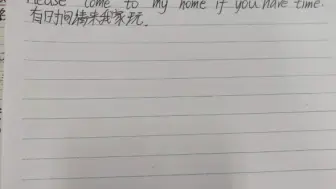 Please come to my home if you have time.
有时间请来我家玩.